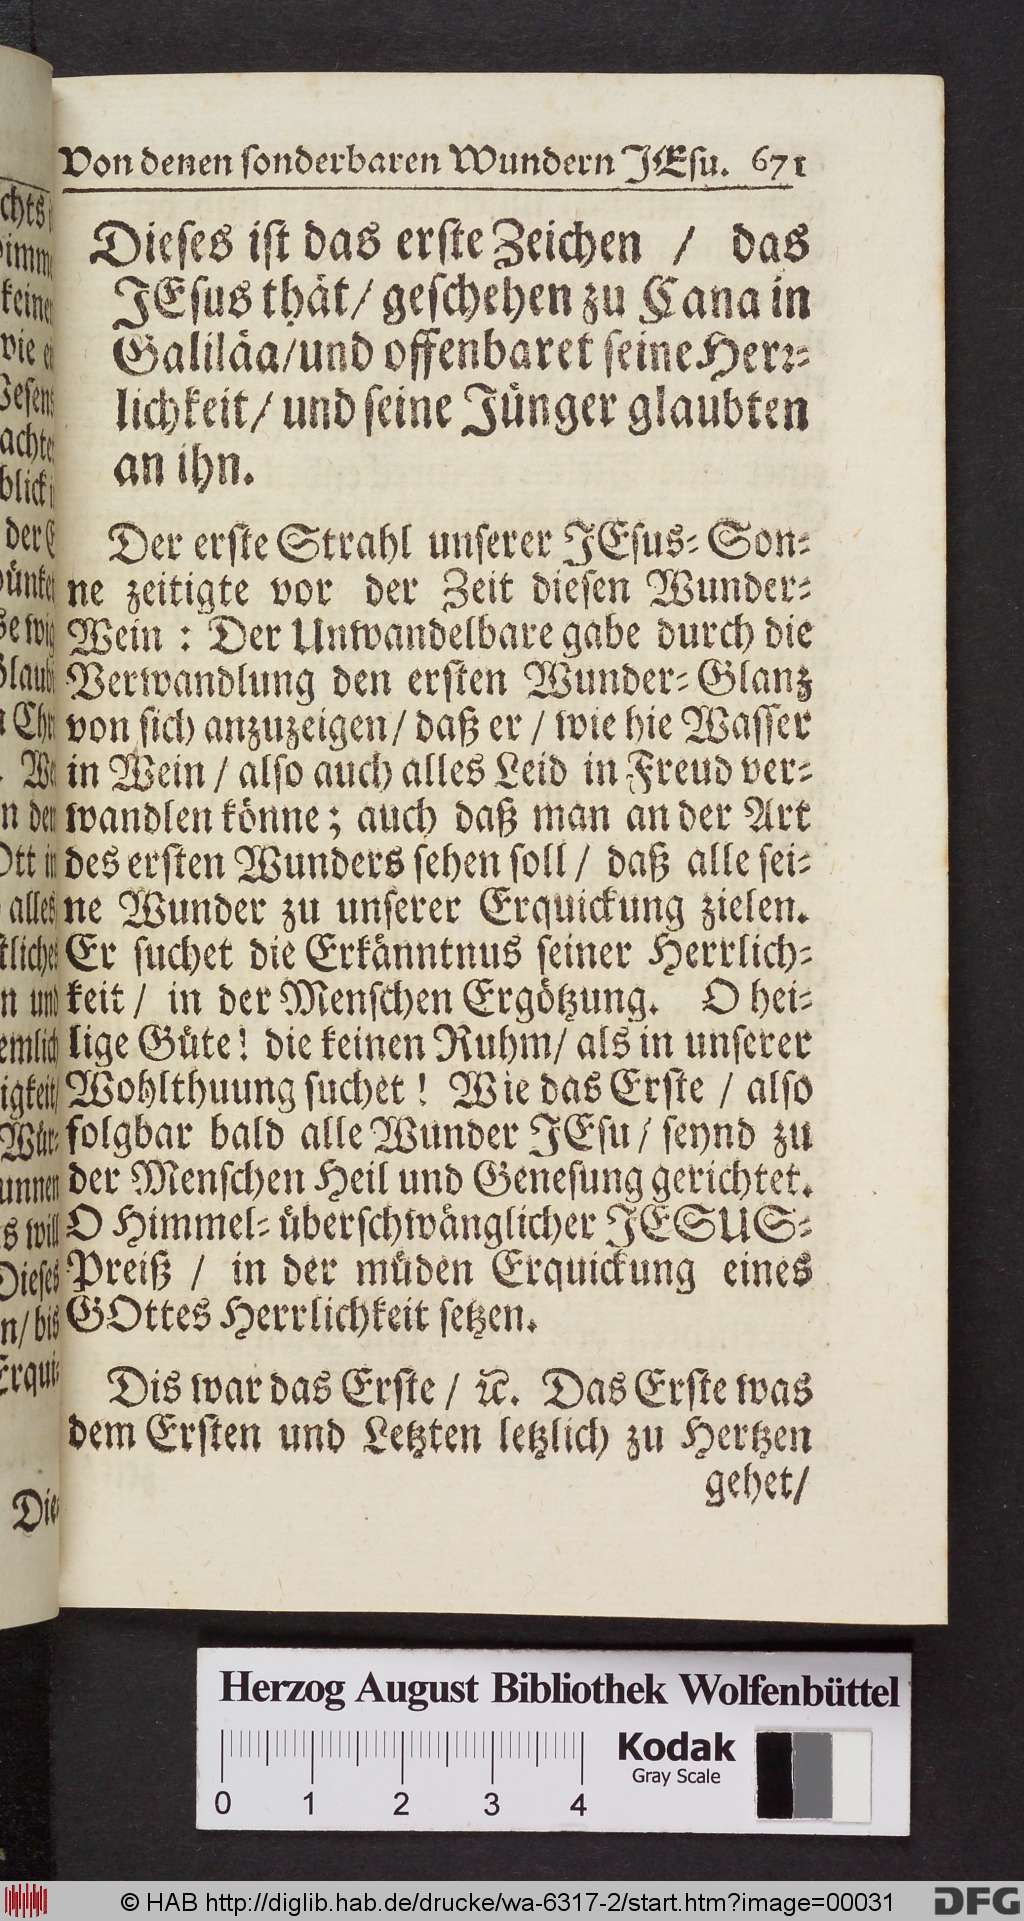 Von denen sonderbaren Wundern JEsu. 671
Dieses ist das erste Zeichen / das
JEsus thät/ geschehen zu Cana in
Galiläa/und offenbaret seine Herr-
lichkeit/ und seine Jünger glaubten
an ihn.
Der erste Strahl unserer JEsus-Son-
ne zeitigte vor der Zeit diesen Wunder-
Wein : Der Unwandelbare gabe durch die
Verwandlung den ersten Wunder-Glanz
von sich anzuzeigen/ daß er / wie hie Wasser
in Wein / also auch alles Leid in Freud ver-
wandlen könne; auch daß man an der Art
des ersten Wunders sehen soll / daß alle sei-
ne Wunder zu unserer Erquickung zielen.
Er suchet die Erkänntnus seiner Herrlich-
keit / in der Menschen Ergötzung. O hei-
lige Güte! die keinen Ruhm/ als in unserer
Wohlthuung suchet ! Wie das Erste / also
folgbar bald alle Wunder JEsu / seynd zu
der Menschen Heil und Genesung gerichtet.
O Himmel-überschwänglicher JESUS-
Preiß / in der müden Erquickung eines
GOttes Herrlichkeit setzen.
Dis war das Erste / ꝛc. Das Erste was
dem Ersten und Letzten letzlich zu Hertzen
gehet/
Herzog August Bibliothek Wolfenbüttel
Kodak
Gray Scale
0 1 2 3 4
© HAB http://diglib.hab.de/drucke/wa-6317-2/start.htm?image=00031
DFG